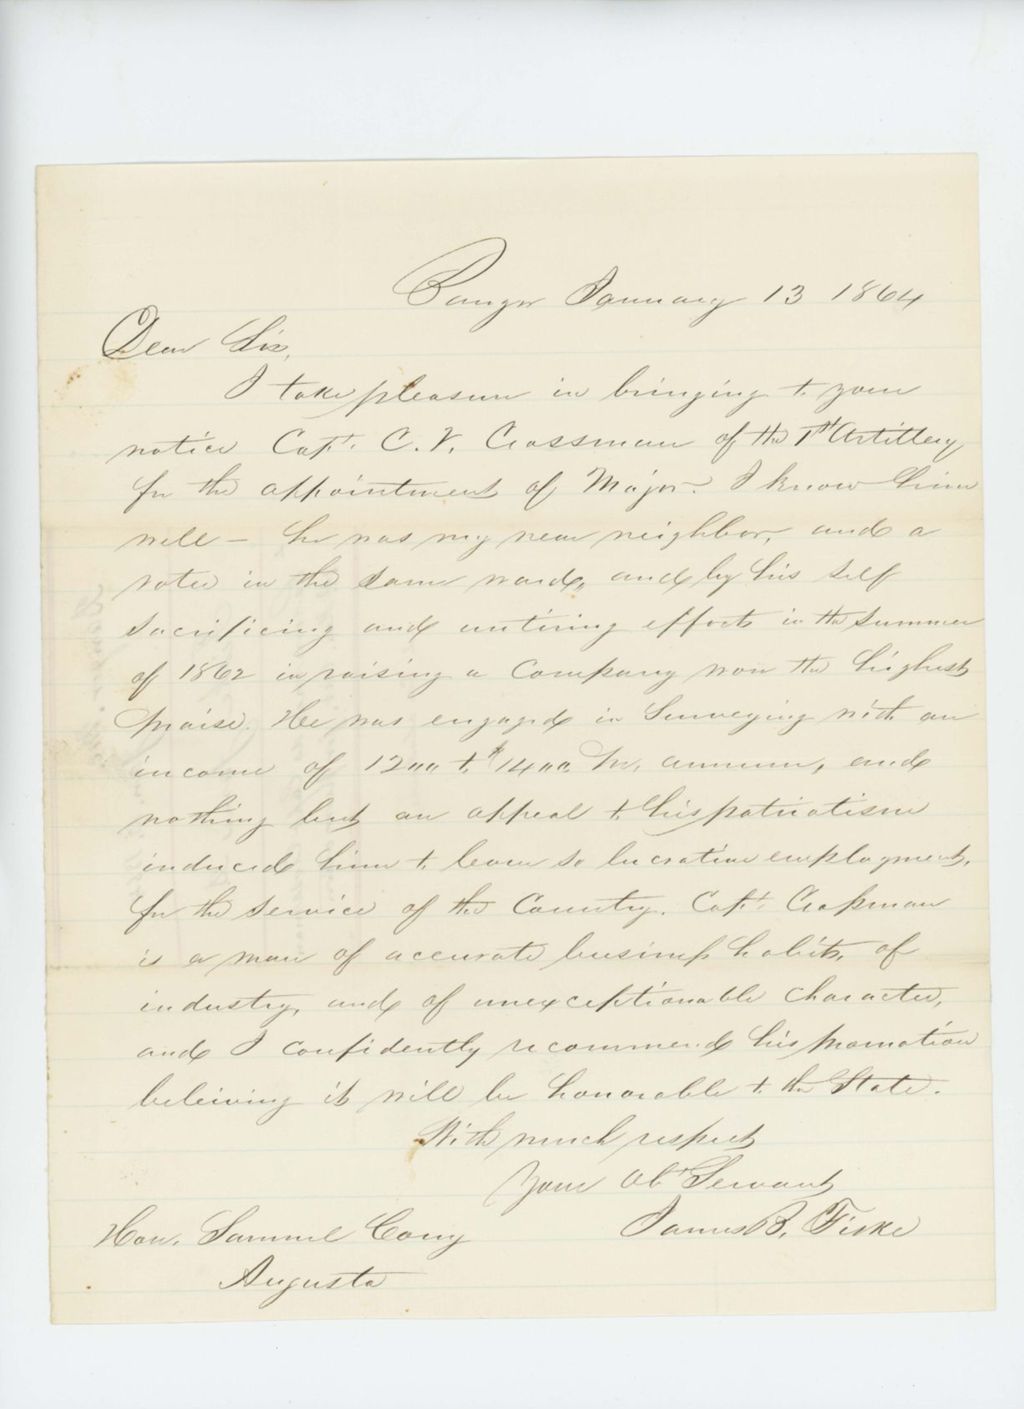 Bangor January 13 1864
Dear Sir,
I take pleasure in bringing to your
notice Capt. C. V. Crossman of the 1st Artillery
for the appointment of Major. I know him
well — he was my near neighbor, and a
voter in the same ward, and by his self
sacrificing and untiring efforts in the summer
of 1862 in raising a Company won the highest
praise. He was engaged in Surveying with an
income of 1200 to $1400 Pr. annum, and
nothing but an appeal to his patriotism
induced him to leave so lucrative employment,
for the service of the Country. Capt. Crosman
is a man of accurate business habits, of
industry, and of unexceptionable character,
and I confidently recommend his promotion
beleiving it will be honorable to the State.
With much respect
Your Obt Servant
James B. Fiske
Hon. Samuel Cony
Augusta